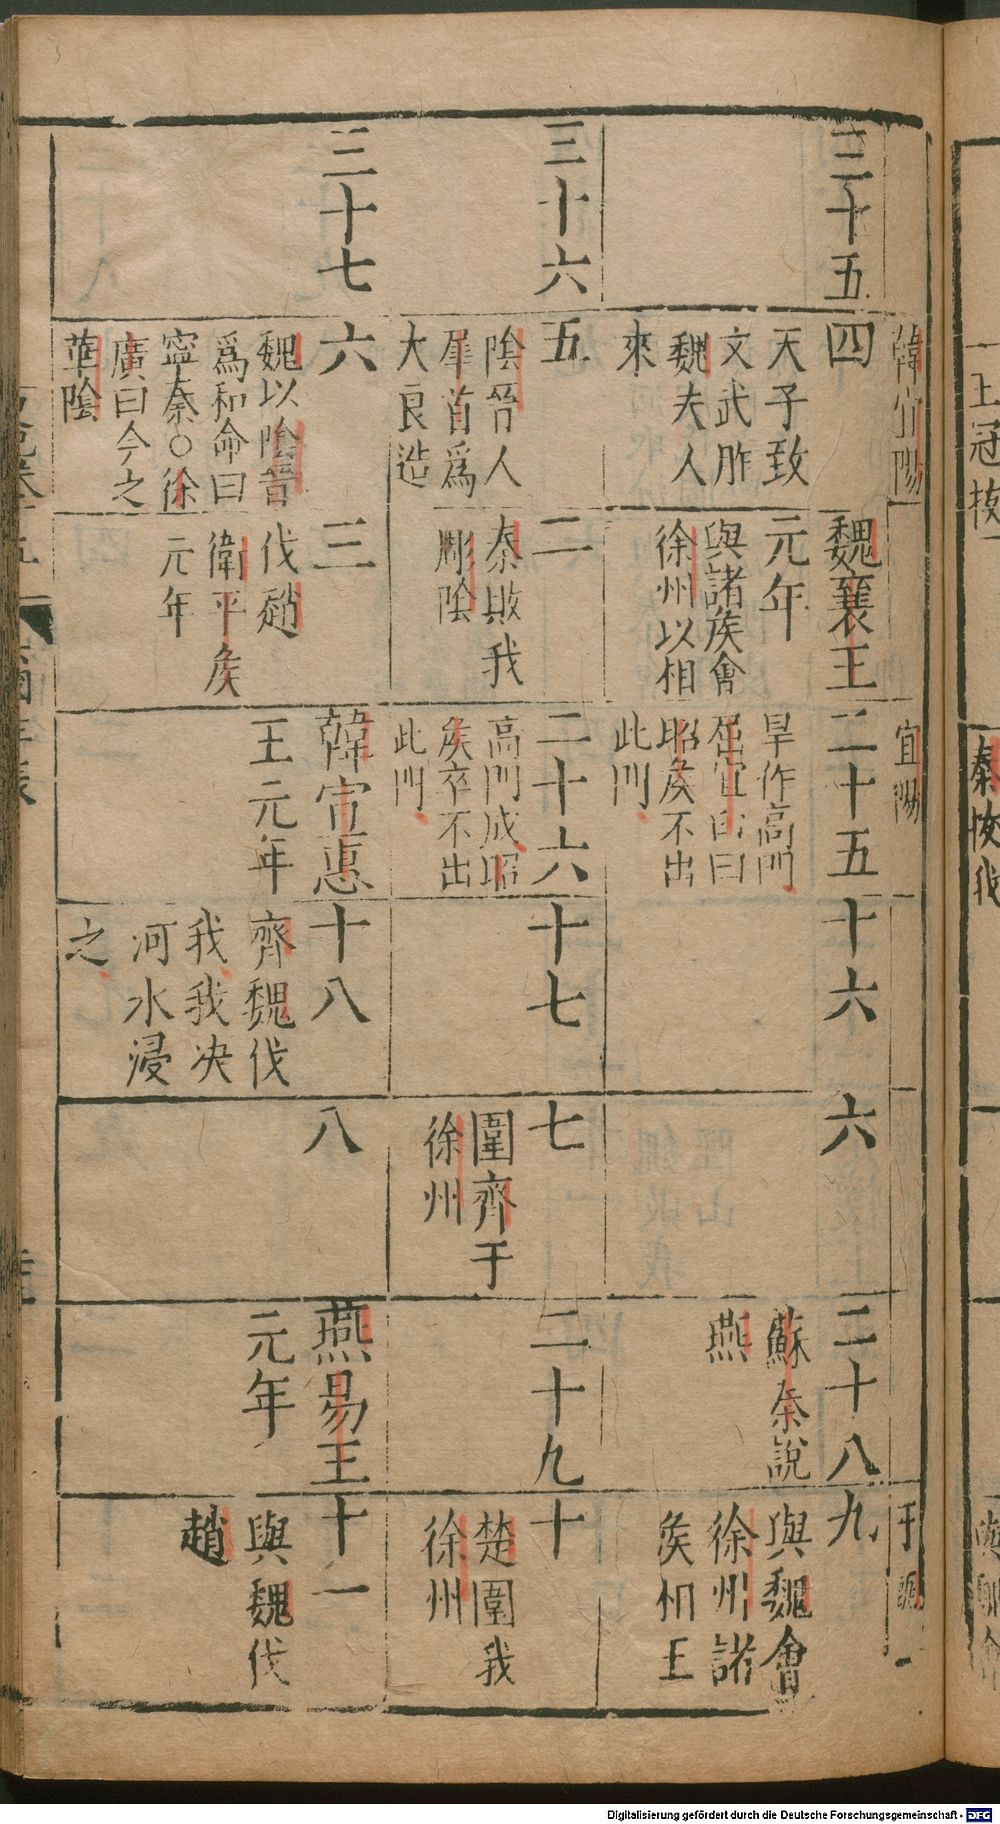 韓宜陽
宜陽
三十五
四
天子致
文武胙
魏夫人
來
魏襄王
元年
與諸矦會
徐州以相
二十五
旱作高門
屈宜臼曰
昭矦不出
此門
十六
六
二十八
蘇秦說
燕
九
與魏會
徐州諸
矦相王
三十六
五
陰晉人
犀首爲
大良造
二
秦敗我
彫陰
二十六
高門成昭
矦卒不出
此門
十七
七
圍齊于
徐州
二十九
十
楚圍我
徐州
三十七
六
魏以陰晉
爲和命曰
寧秦○徐
廣曰今之
華陰
三
伐趙
衛平矦
元年
韓宣惠
王元年
十八
齊魏伐
我我决
河水浸
之
八
燕易王
元年
十一
與魏伐
趙
王冠
秦
我
Digitalisierung gefördert durch die Deutsche Forschungsgemeinschaft - DFG